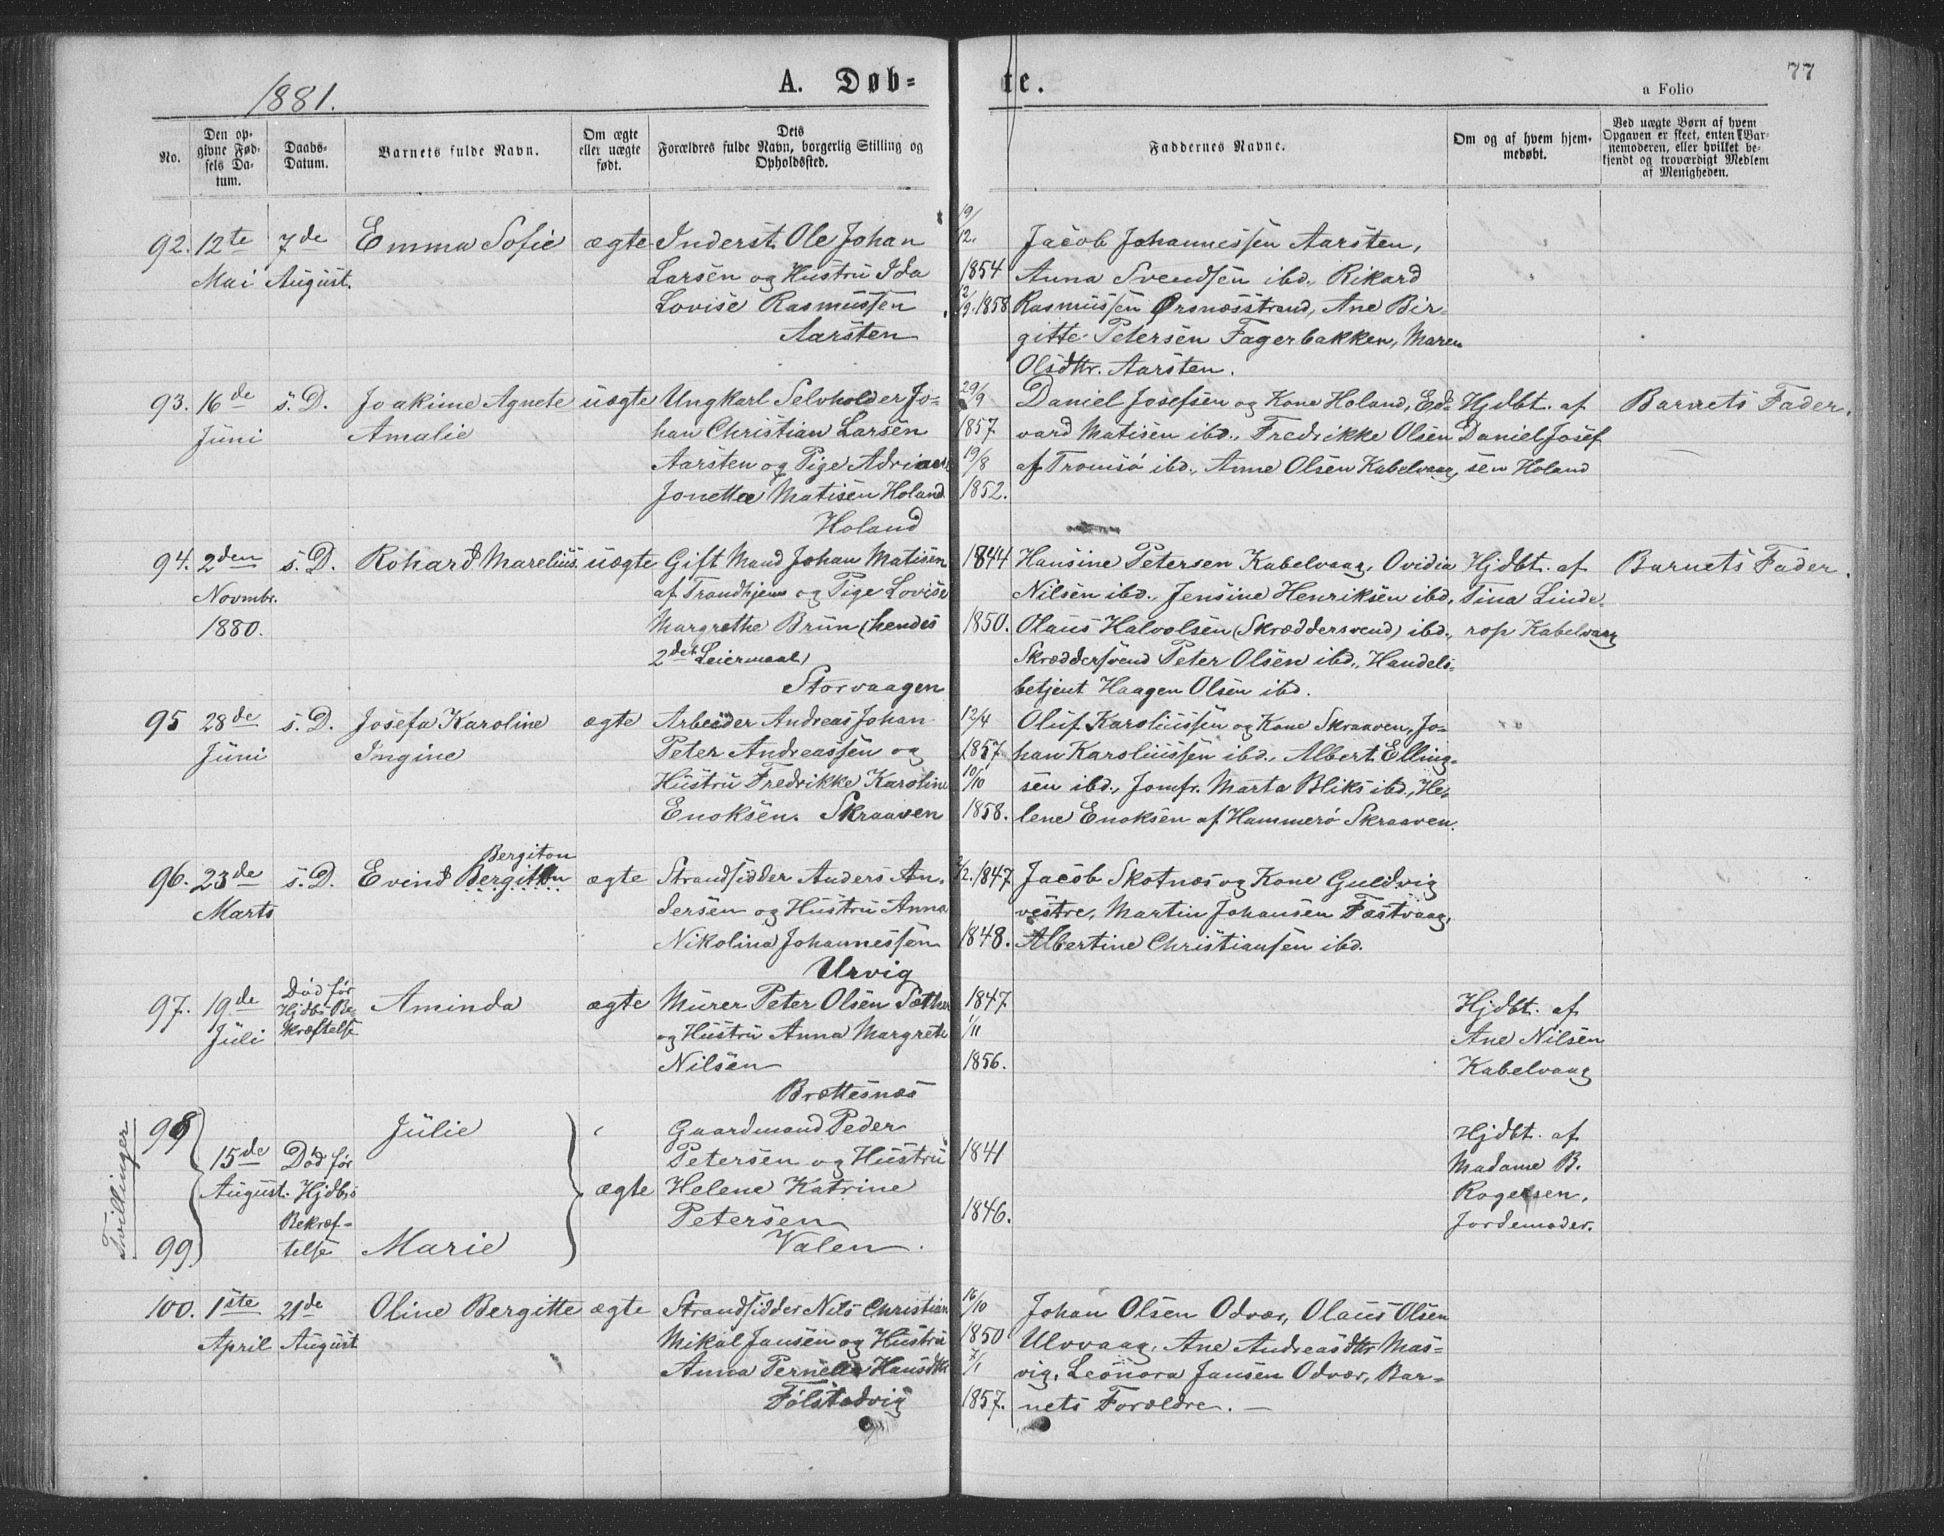 1881.
A. Døb=
te.
77
a Folio
No.
Den op-
givne Fød-
sels Da-
tum.
Daabs-
Datum.
Barnets fulde Navn.
Om ægte
eller uægte
født.
Dets
Forældres fulde Navn, borgerlig Stilling og
Opholdssted.
Faddernes Navne.
Om og af hvem hjem-
medøbt.
Ved uægte Børn af hvem
Opgaven er skeet, enten Bar-
nemoderen, eller hvilket be-
kjendt og troværdigt Medlem
af Menigheden.
92.
12te
Mai
7de
August.
Emma Sofie
ægte
Inderst Ole Johan
Larsen og Hustru Ida
Lovise Rasmussen
Aarsten
19/
12.
1854
12/
9. 1858
Jacob Johannessen Aarsten,
Anna Svendsen ibd., Rikard
Rasmussen Ørsnæsstrand, Ane Bir-
gitte Petersen Fagerbakken, Maren
Olsdttr. Aarsten.
93.
16de
Juni
s. D.
Joakime Agnete
Amalie
uægte
Ungkarl Selvholder Jo-
han Christian Larsen
Aarsten og Pige
Jonetta Matisen Holand
Holand
29/9
1857
19/8
1852.
Daniel Josefsen og Kone Holand, Ed-
vard Matisen ibd., Fredrikke Olsen
af Tromsø ibd., Anne Olsen Kabelvaag
Hjdbt. af
Daniel Josef
sen Holand
Barnets Fader.
94.
2den
Novmbr.
1880.
s. D.
Rohard Marelius.
uægte
Gift Mand Johan Matisen
af Trondhjem og Pige Lovise
Margrethe Brun (hendes
2det Leiermaal)
Storvaagen
1844
1850.
Hansine Petersen Kabelvaag, Ovidia
Nilsen ibd., Jensine Henriksen ibd,
Olaus Halvolsen (Skræddersvend) ibd.,
Skræddersvend Peter Olsen ibd., Handels-
betjent Haagen Olsen ibd.
Hjdbt. af
Tina Linde-
rop Kabelvaag
Barnets Fader.
95
28de
Juni
s. D.
Josefa Karoline
Ingine
ægte
Arbeider Andreas Johan
Peter Andreassen og
Hustru Fredrikke Karoline
Enoksen. Skraaven
12/4
1857.
10/10
1858.
Oluf Karoliussen og Kone Skraaven, Jo-
han Karoliussen ibd., Albert Elling-
sen ibd., Jomfr. Marta Bliks ibd., He-
lene Enoksen af Hammerø Skraaven.
96.
23de
Marts
s. D.
Bergiton
Evind Bergitton
ægte
Strandsidder Anders An-
dersen og Hustru Anna
Nikolina Johannessen
Urvig
2/2. 1847
1848.
Jacob Skotnæs og Kone Guldvig
vestre, Martin Johansen Fæstvaag,
Albertine Christiansen ibd.
97.
19de
Juli
Død før
Hjdbs Be-
kræftelse
Aminda
ægte
Murer Peter Olsen Sæther
og Hustru Anna Margrete
Nilsen
Brettesnæs
1847.
1/11
1856.
Hjdbt. af
Ane Nilsen
Kabelvaag
Tvillinger
98
99.
15de
August.
Død før
Hjdbs
Bekræf-
telse
Julie
Marie
ægte
Gaardmand Peder
Petersen og Hustru
Helene Katrine
Petersen
Valen.
1841
1846.
Hjdbt. af
Madame B.
Rogersen,
Jordemoder.
100.
1ste
April
21de
August
Oline Bergitte
ægte
Strandsidder Nils Christian
Mikal Jansen og Hustru
Anna Pernella Hansdttr
Følstadvig
16/10
1850
7/1
1857.
Johan Olsen Odvær, Olaus Olsen
Ulvvaag, Ane Andreasdttr Mas-
vig, Leonora Jansen Odvær, Bar-
nets Forældre. —